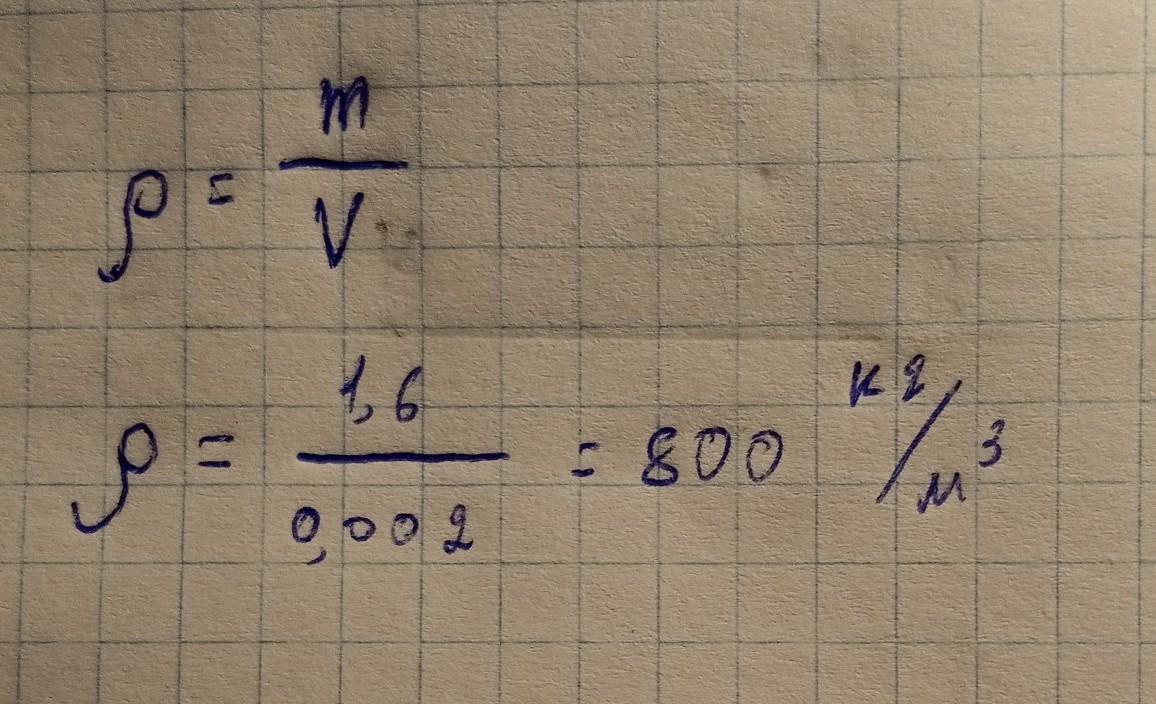 ρ = m/V
ρ = 1,6/0,002 = 800 кг/м³